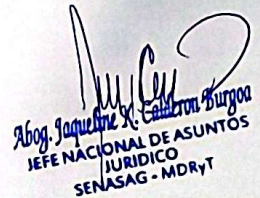 Abog. Jaqueline K. Calderon Burgoa
JEFE NACIONAL DE ASUNTOS
JURIDICO
SENASAG - MDRyT